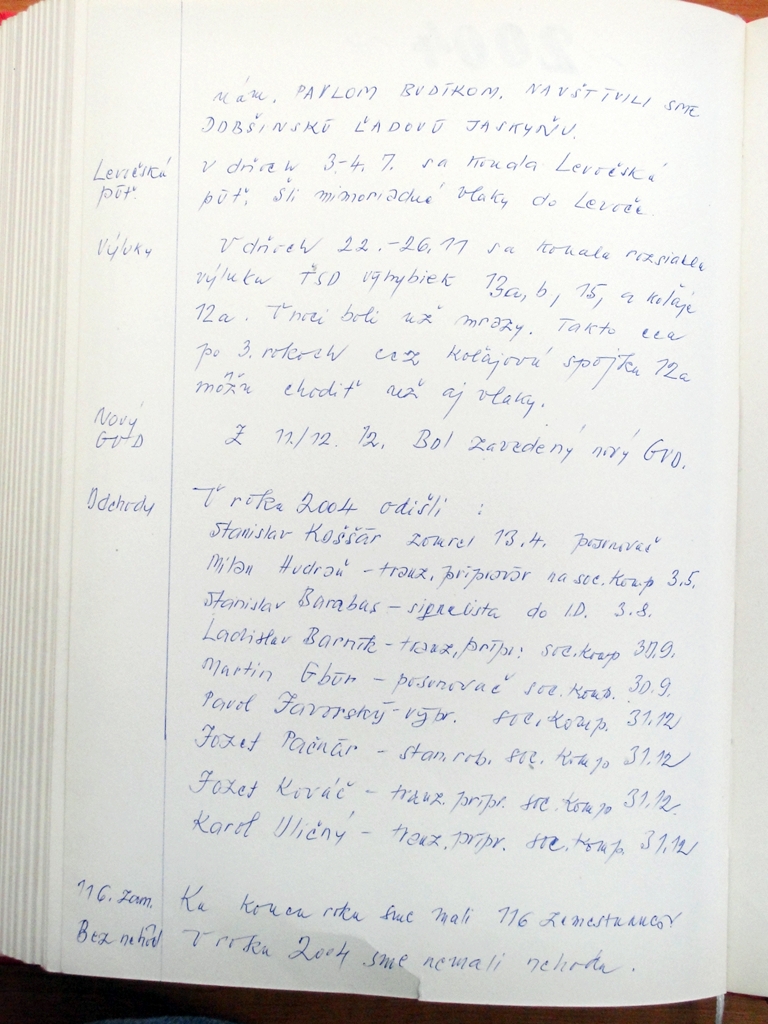 nám. PAVLOM BUDÍKOM. NAVŠTÍVILI SME
DOBŠINSKÚ ĽADOVÚ JASKYŇU.
Levočská
púť.
V dňoch 3.-4. 7. sa konala Levočská
púť, šli mimoriadné vlaky do Levoče.
Výluky
V dňoch 22.-26.11 sa konala rozsiahla
výluka TSD výhybiek 13a, b, 15, a koľaje
12a. V noci boli už mrazy. Takto cca
po 3. rokoch cez koľajovú spojku 12a
môžu chodiť už aj vlaky.
Nový
GVD
Z 11./12. 12. Bol zavedený nový GVD.
Odchody
V roku 2004 odišli :
Stanislav Koššár zomrel 13.4. posunovač
Milan Hudráň - tranz. pripravár na soc. komp 3.5.
Stanislav Barabas - signalista do I.D. 3.8.
Ladislav Barník - tranz. pripr. soc. komp 30.9.
Martin Gbúr - posunovač soc. komp. 30.9.
Pavol Javorský - výpr. soc. komp. 31.12
Jozef Pačnár - stan. rob. soc. komp 31.12
Jozef Kováč - tranz. pripr. soc. komp 31.12.
Karol Uličný - tranz. pripr. soc. komp. 31.12
116. zam.
Ku koncu roku sme mali 116 zamestnancov
Bez nehôd
V roku 2004 sme nemali nehodu.